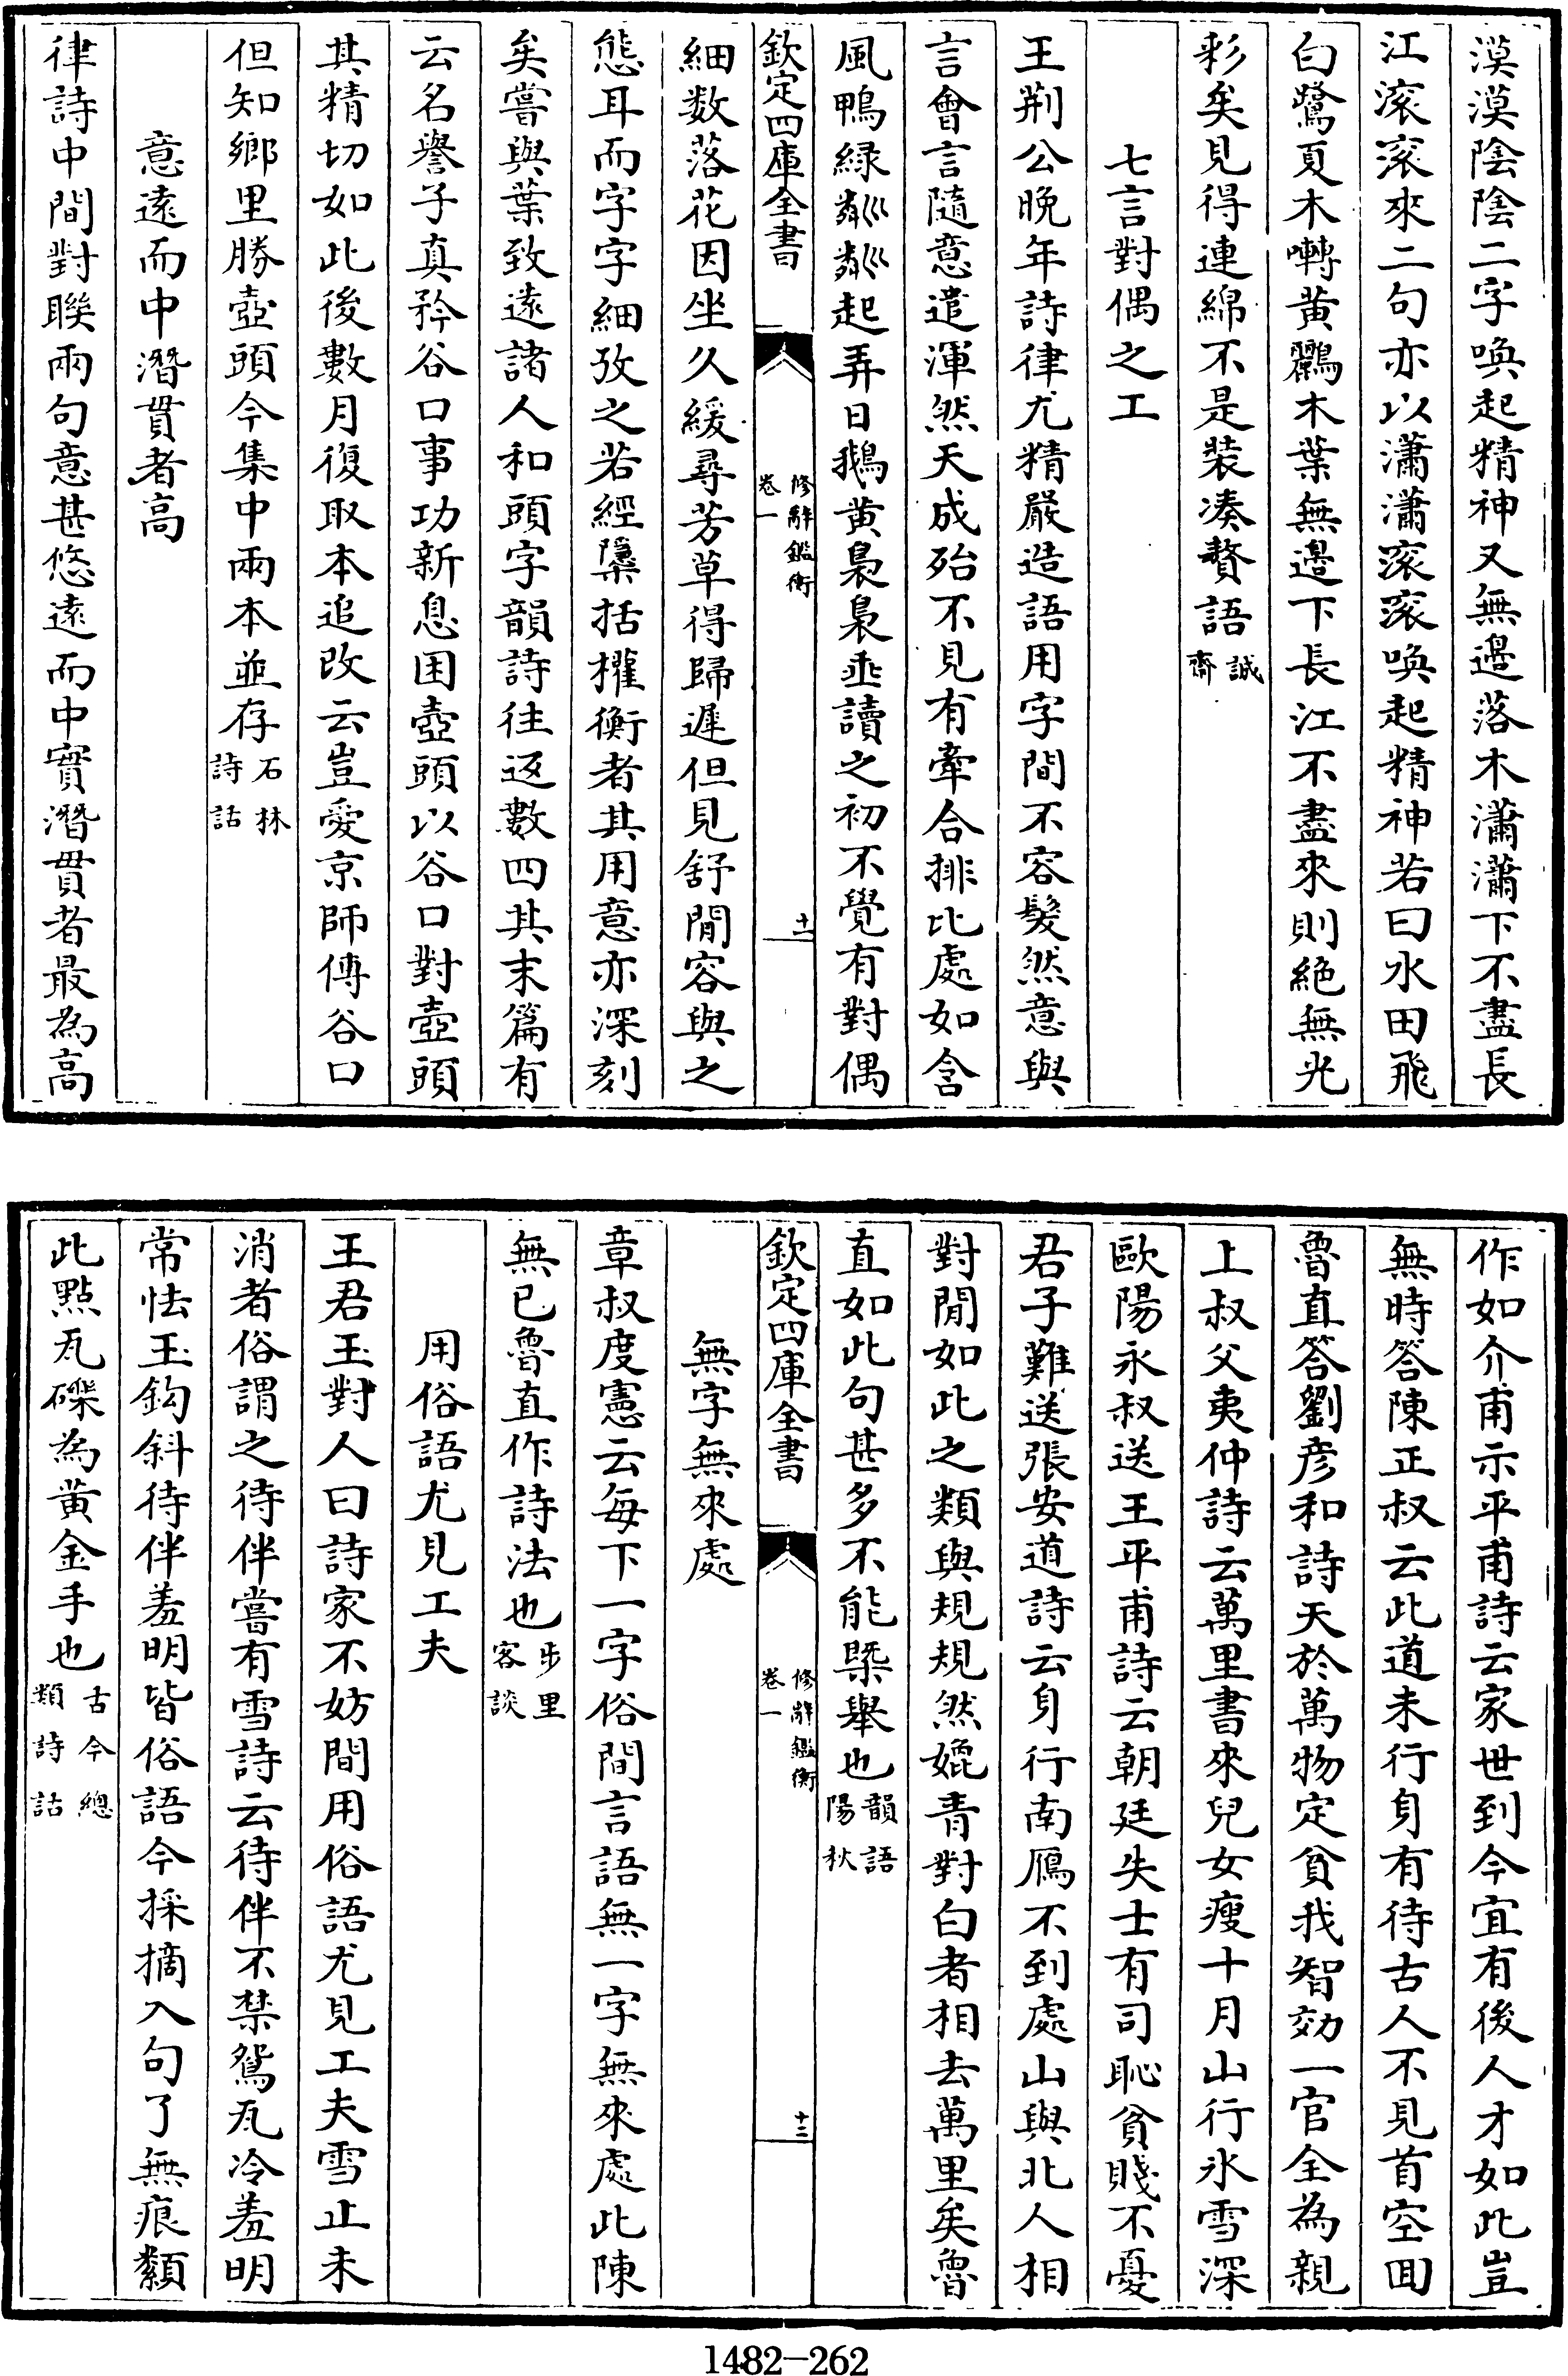 漠漠陰陰二字喚起精神又無邊落木瀟瀟下不盡長
江滚滚來二句亦以瀟瀟滚滚喚起精神若曰水田飛
白鷺夏木囀黄鸝木葉無邊下長江不盡來則絶無光
彩矣見得連綿不是裝凑贅語誠齋
七言對偶之工
王荆公晚年詩律尤精嚴造語用字間不容髮然意與
言會言隨意遣渾然天成殆不見有牽合排比處如含
風鴨緑粼粼起弄日鵝黄裊裊垂讀之初不覺有對偶
欽定四庫全書
修辭鑑衡
卷一
十一
細數落花因坐久緩尋芳草得歸遲但見舒閒容與之
態耳而字字細攷之若經檃括權衡者其用意亦深刻
矣嘗與葉致遠諸人和頭字韻詩往返數四其末篇有
云名譽子真矜谷口事功新息困壺頭以谷口對壺頭
其精切如此後數月復取本追改云豈愛京師傳谷口
但知鄉里勝壺頭今集中兩本並存石林詩話
意遠而中潛貫者高
律詩中間對聯兩句意甚悠遠而中實潛貫者最為高
作如介甫示平甫詩云家世到今宜有後人才如此豈
無時答陳正叔云此道未行身有待古人不見首空回
魯直答劉彦和詩天於萬物定貧我智効一官全為親
上叔父夷仲詩云萬里書來兒女瘦十月山行氷雪深
歐陽永叔送王平甫詩云朝廷失士有司恥貧賤不憂
君子難送張安道詩云身行南鴈不到處山與北人相
對閒如此之類與規規然媲青對白者相去萬里矣魯
直如此句甚多不能槩舉也韻語陽秋
欽定四庫全書
修辭鑑衡
卷一
十二
無字無來處
章叔度憲云每下一字俗間言語無一字無來處此陳
無已魯直作詩法也步里客談
用俗語尤見工夫
王君玉對人曰詩家不妨間用俗語尤見工夫雪止未
消者俗謂之待伴嘗有雪詩云待伴不禁鴛瓦冷羞明
常怯玉鈎斜待伴羞明皆俗語今採摘入句了無痕纇
此點瓦礫為黄金手也古今總類詩話
1482-262